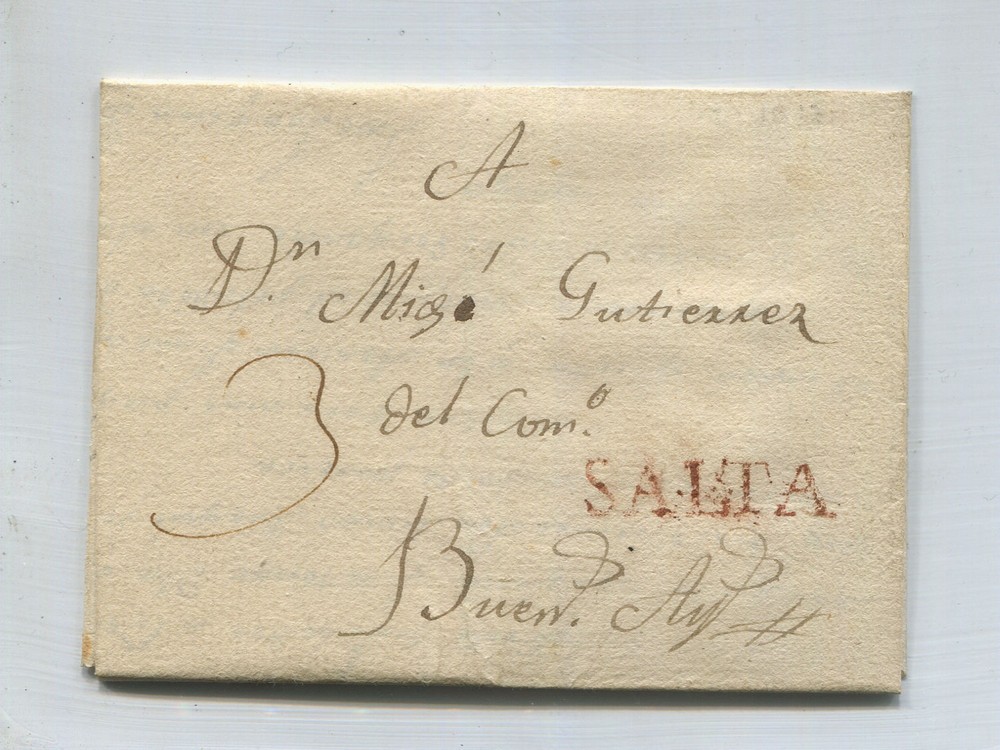 A
Dn. Migl Gutierrez
3
del Como.
SALTA
Buens. Ays